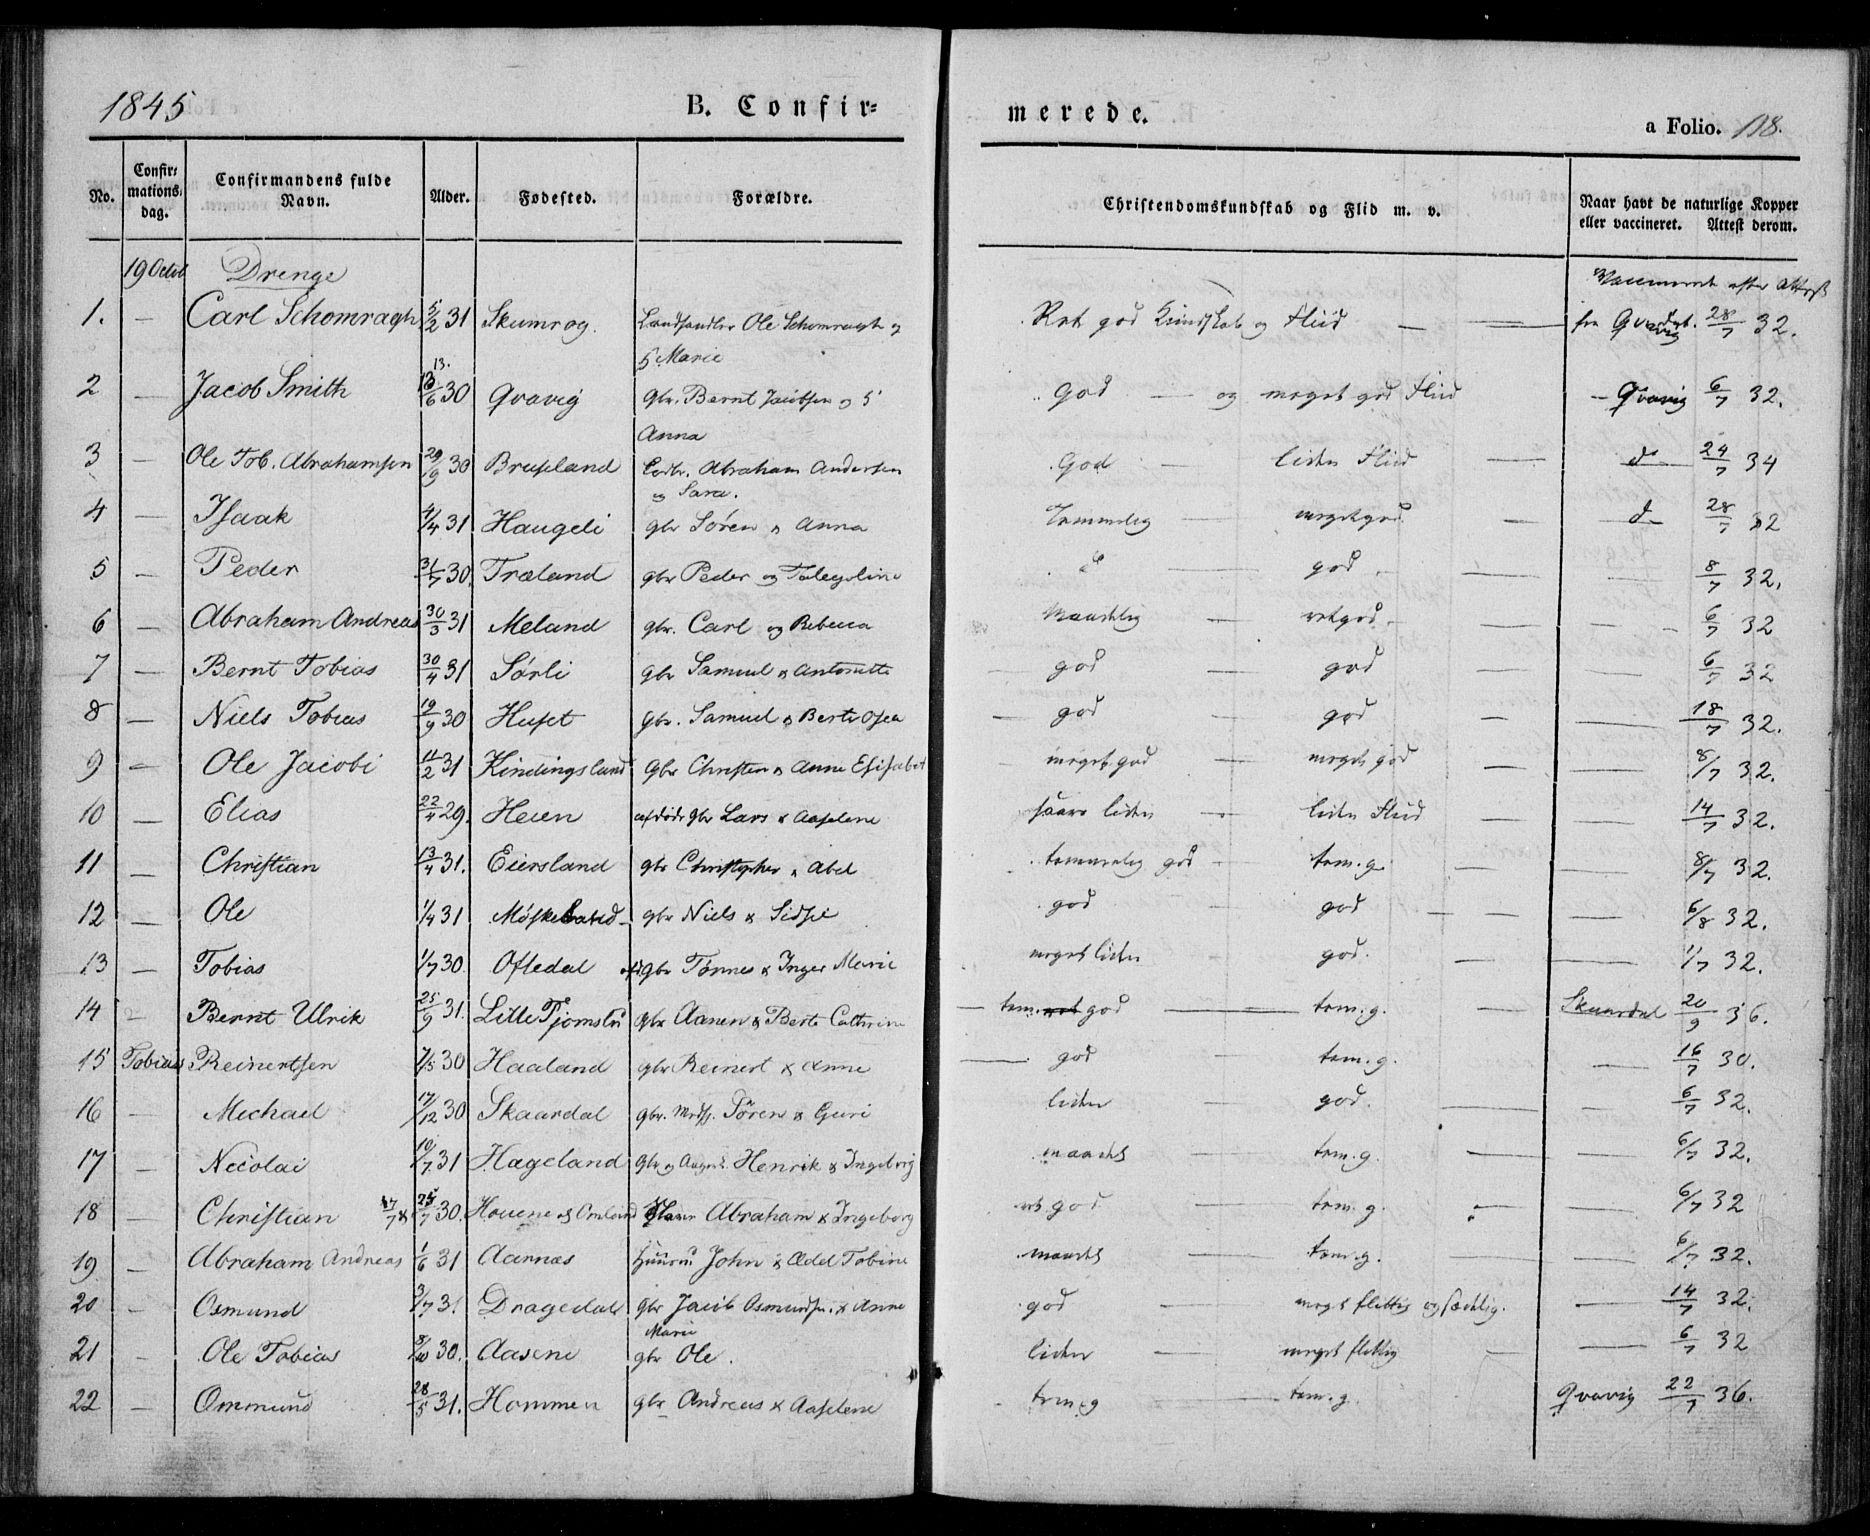 1845 B. Confir= merede. a Folio. 118.
No. Confir=mations=dag. Confirmandens fulde Navn. Alder. Fødested. Forældre. Christendomskundskab og Flid m. v. Naar havt de naturlige Kopper eller vaccineret. Attest derom.
19 Octob Drenge Vaccineret efter Attest
1. — Carl Schomragh 5/2 31 Skumrog. Landhandler Ole Schomragh og Ret god Kundskab og Flid — — fra Qvavig 28/7 32.
5 Marie
2 — Jacob Smith 13/6 30 13. Qvavig Gbr. Bernt Jacobsen og 5 God — og meget god Flid — Qvavig 6/7 32.
Anna
3 — Ole Tob. Abrahamsen 29/9 30 Brusland Abraham Andersen God — liden Flid — d— 24/7 34
og Sara.
4 — Isaak 4/4 31 Haugeli gbr Søren & Anna Temmelig — meget god — d— 28/7 32
5 — Peder 31/7 30. Træland gbr Peder og Taletoline d — god — — 8/7 32.
6 — Abraham Andreas 30/3 31 Meland gbr. Carl og Rebecca Maadelig — retgod. — — — 6/7 32
7 — Bernt Tobias 30/4 31 Sørli gbr Samuel & Antonette — god — god — — 6/7 32
8 — Niels Tobias 19/9 30 Huset Gbr. Samuel & Berte Osea — god — god — — 18/7 32.
9 — Ole Jacobi 11/2 31 Kindingsland Gbr Christen & Anne Elisabet — meget god — meget god — — 8/7 32.
10 — Elias 22/4 29. Heien afdøde gbr Lars & Aaselene saare liden — liden Flid — — 14/7 32.
11 — Christian 13/4 31. Eiersland gbr Christopher & Abel temmelig god — tem. g. — — 8/7 32.
12 — Ole 1/4 31 Møskeland gbr Niels & Sidsel god — god — — — 6/8 32.
13 — Tobias 1/7 30. Oftedal afd. gbr Tønnes & Inger Marie meget liden — god. — — 1/7 32.
14 Bernt Ulrik 25/9 31. Lille Tjomslu gbr Aanen & Berte Cathrine — tem. god — tem. g. — Skaardal 20/9 36.
15 Tobias Reinertsen 7/5 30 Haaland gbr Reinert & Anne — god — tem. g. — 16/7 30.
16 — Michael 17/12 30 Skaardal gbr. Søren & Guri liden — god. — — 6/7 32.
17 — Nicolai 10/7 31 Hageland Gbr og Henrik & Ingeborg maadel — tem. g. — — 6/7 32.
18 — Christian 17/7 & 25/7 30. Houene og Omland Abraham & Ingeborg ret god — tem. g. — 6/7 32
19 — Abraham Andreas 1/6 31 Aarnæs Huusm John & Ædel Tobine maadel — tem. g. — — 6/7 32.
20 — Osmund 3/7 31. Dragedal Gbr Jacob Osmundsen. & Anne god — meget flittig og sædelig. — 14/7 32.
Marie
21 — Ole Tobias 8/10 30. Aasene gbr Ole. liden — meget flittig — — 6/7 32
22 — Ommund 28/5 31. Hommen gbr Andreas & Aaselene tem. g — tem. g. — Qvavig 22/7 36.